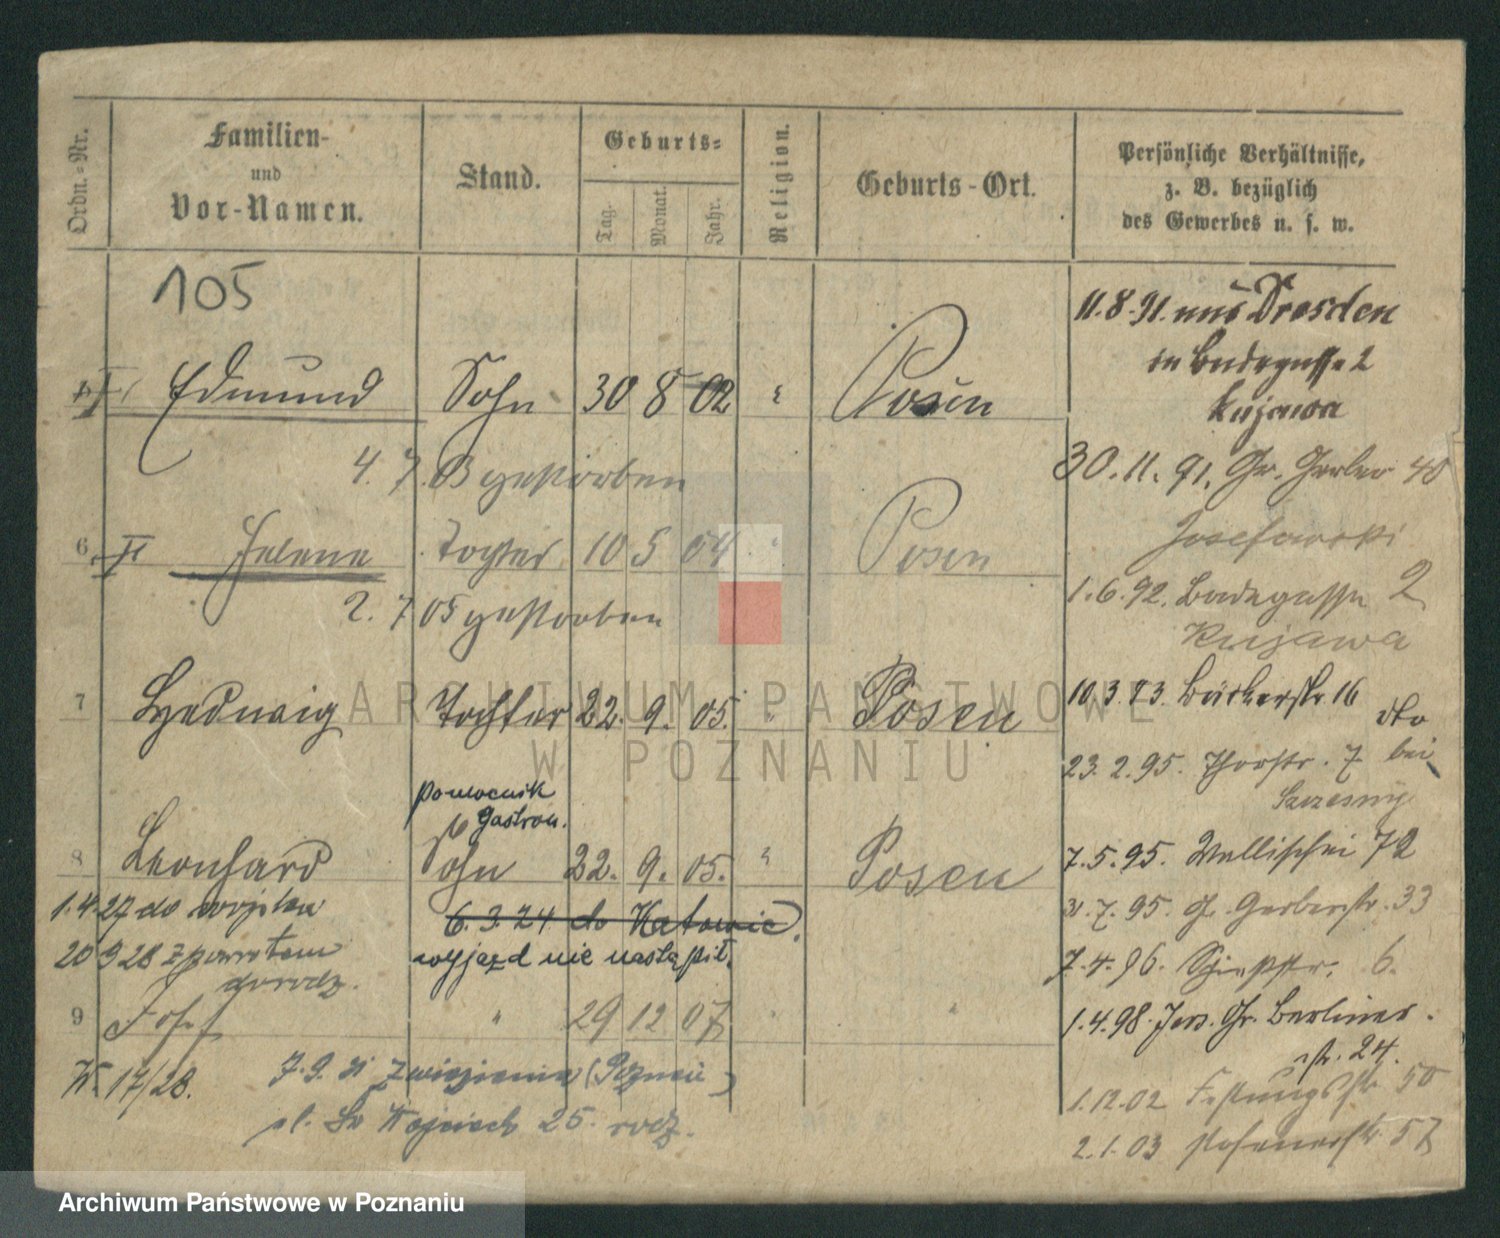 Ordn.-Nr.
Familien-
und
Vor-Namen.
Stand.
Geburts-
Tag.
Monat.
Jahr.
Religion.
Geburts-Ort.
Persönliche Verhältnisse,
z. B. bezüglich
des Gewerbes u. s. w.
105
Edmund Sohn 30 8 02 " Posen
4. 7. 03 gestorben
6. II Helene Tochter 10 5 04 " Posen
2. 7. 05 gestorben
7 Hedwig Tochter 22. 9. 05. " Posen
pomocnik
gastron.
8 Leonhard Sohn 22. 9. 05. " Posen
1.4.27 do wojska
6.3.24 do Katowic.
20 9 28 z powrotem
do rodz.
wyjazd nie nastąpił.
9 Josef " 29 12 07 " "
W. 17/28.
7.9.31 z więzienia (Poznań)
pl. Św Wojciech 25. rodz.
11.8.91. aus Dresden
in Badegasse 2
Kujawa
30.11.91. Gr. Gerber 40
Josefowski
1.6.92. Badegasse 2
Kujawa
10.3.93. Bäckerstr 16
dto
bei
23.2.95. Thorstr. 7
Szczesny
7.5.95. Wallischei 72
31.7.95. Gr. Gerberstr. 33
7.4.96. Schiffstr. 6.
1.4.98. Gr. Berliner-
str. 24.
1.12.02 Festungsstr 50
2.1.03 Posenerstr. 57
ARCHIWUM PAŃSTWOWE
W POZNANIU
Archiwum Państwowe w Poznaniu